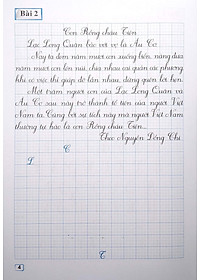 Bài 2
Con Rồng cháu Tiên
Lạc Long Quân bảo với vợ là Âu Cơ
Nay ta đem năm mươi con xuống biển, nàng đưa
năm mươi con lên núi, chia nhau cai quản các phương
khi có việc thì giúp đỡ lẫn nhau, đừng quên lời hẹn.
Một trăm người con của Lạc Long Quân và
Âu Cơ sau này trở thành tổ tiên của người Việt
Nam ta. Cũng bởi sự tích này mà người Việt Nam
thường tự hào là con Rồng cháu Tiên...
Theo Nguyễn Đổng Chi
C
L
T
4